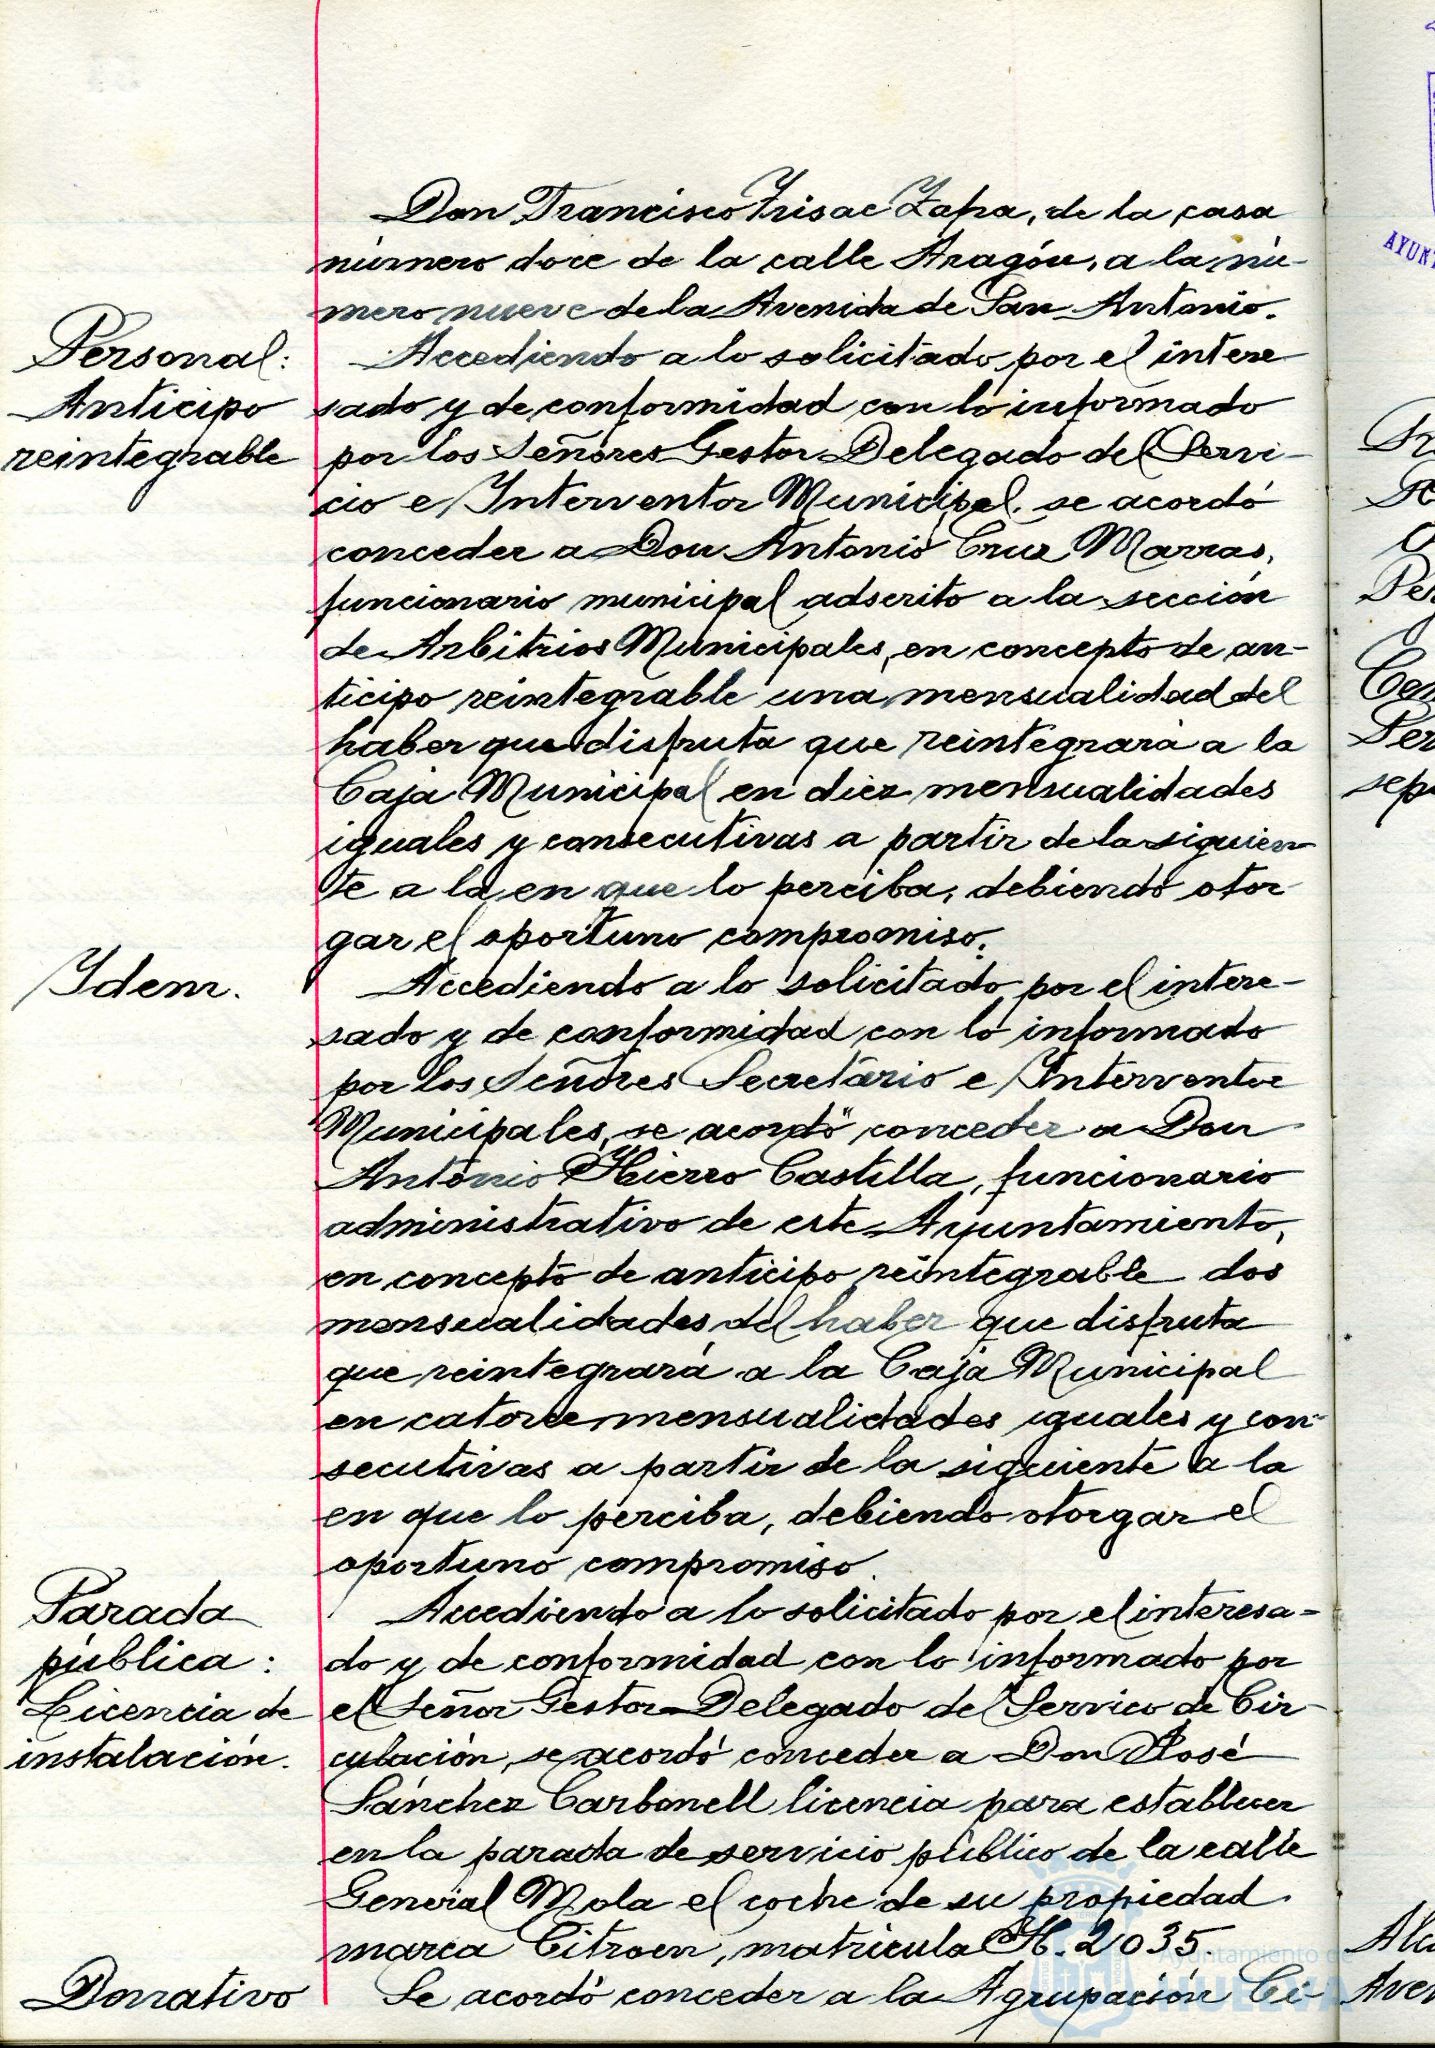 Don Francisco Yrisac Zapa, de la casa
número doce de la calle Aragón, a la nú-
mero nueve de la Avenida de San Antonio.
Personal:
Anticipo
reintegrable
Accediendo a lo solicitado por el intere
sado y de conformidad con lo informado
por los Señores Gestor Delegado del Servi-
cio e Interventor Municipal, se acordó
conceder a Don Antonio Cruz Marras,
funcionario municipal adscrito a la sección
de Arbitrios Municipales, en concepto de an-
ticipo reintegrable una mensualidad del
haber que disfruta que reintegrará a la
Caja Municipal en diez mensualidades
iguales y consecutivas a partir de la siguien
te a la en que lo perciba, debiendo otor
gar el oportuno compromiso.
Ydem.
Accediendo a lo solicitado por el intere-
sado y de conformidad con lo informado
por los Señores Secretario e Interventor
Municipales, se acordó conceder a Don
Antonio Hierro Castilla, funcionario
administrativo de este Ayuntamiento,
en concepto de anticipo reintegrable dos
mensualidades del haber que disfruta
que reintegrará a la Caja Municipal
en catorce mensualidades iguales y con-
secutivas a partir de la siguiente a la
en que lo perciba, debiendo otorgar el
oportuno compromiso.
Parada
pública:
Licencia de
instalación.
Accediendo a lo solicitado por el interesa-
do y de conformidad con lo informado por
el Señor Gestor Delegado de Servico de Cir-
culación, se acordó conceder a Don José
Sánchez Carbonell licencia para establecer
en la parada de servicio público de la calle
General Mola el coche de su propiedad
marca Citroen, matricula H. 2035
Donativo
Se acordó conceder a la Agrupación Ci-
Ayuntamiento de
HUELVA
AYUNT
Per
Com
Per
sepu
Alc
Aven